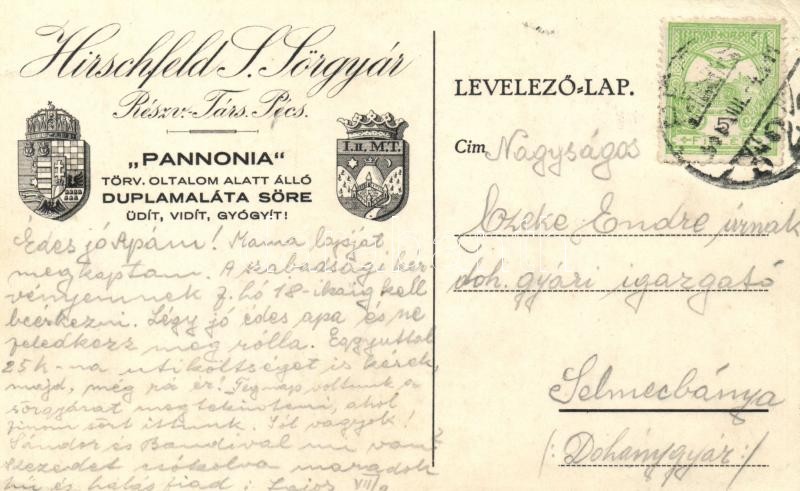 Hirschfeld S. Sörgyár
Részv.-Társ. Pécs.
I. u. M.T.
„PANNONIA“
TÖRV. OLTALOM ALATT ÁLLÓ
DUPLAMALÁTA SÖRE
ÜDÍT, VIDÍT, GYÓGYÍT!
Édes jó Apám! Mama lapját
megkaptam. A szabadsági kér-
vényemnek f. hó 18-ikáig kell
beérkezni. Légy jó édes apa és ne
feledkezz meg rólla. Egyúttal
25 k-na utiköltséget is kérek,
majd, még rá ér! Tegnap voltunk a
sörgyárat megtekinteni, ahol
finom sört ittunk. Jól vagyok!
Sándor és Bandival mi van?
Kezedet csókolva maradok
hű és hálás fiad: Lajos VII/9
LEVELEZŐ-LAP.
Cim Nagyságos
Endre úrnak
doh. gyári igazgató
Selmecbánya
(: Dohánygyár :)
MAGYAR KIR. POSTA
5